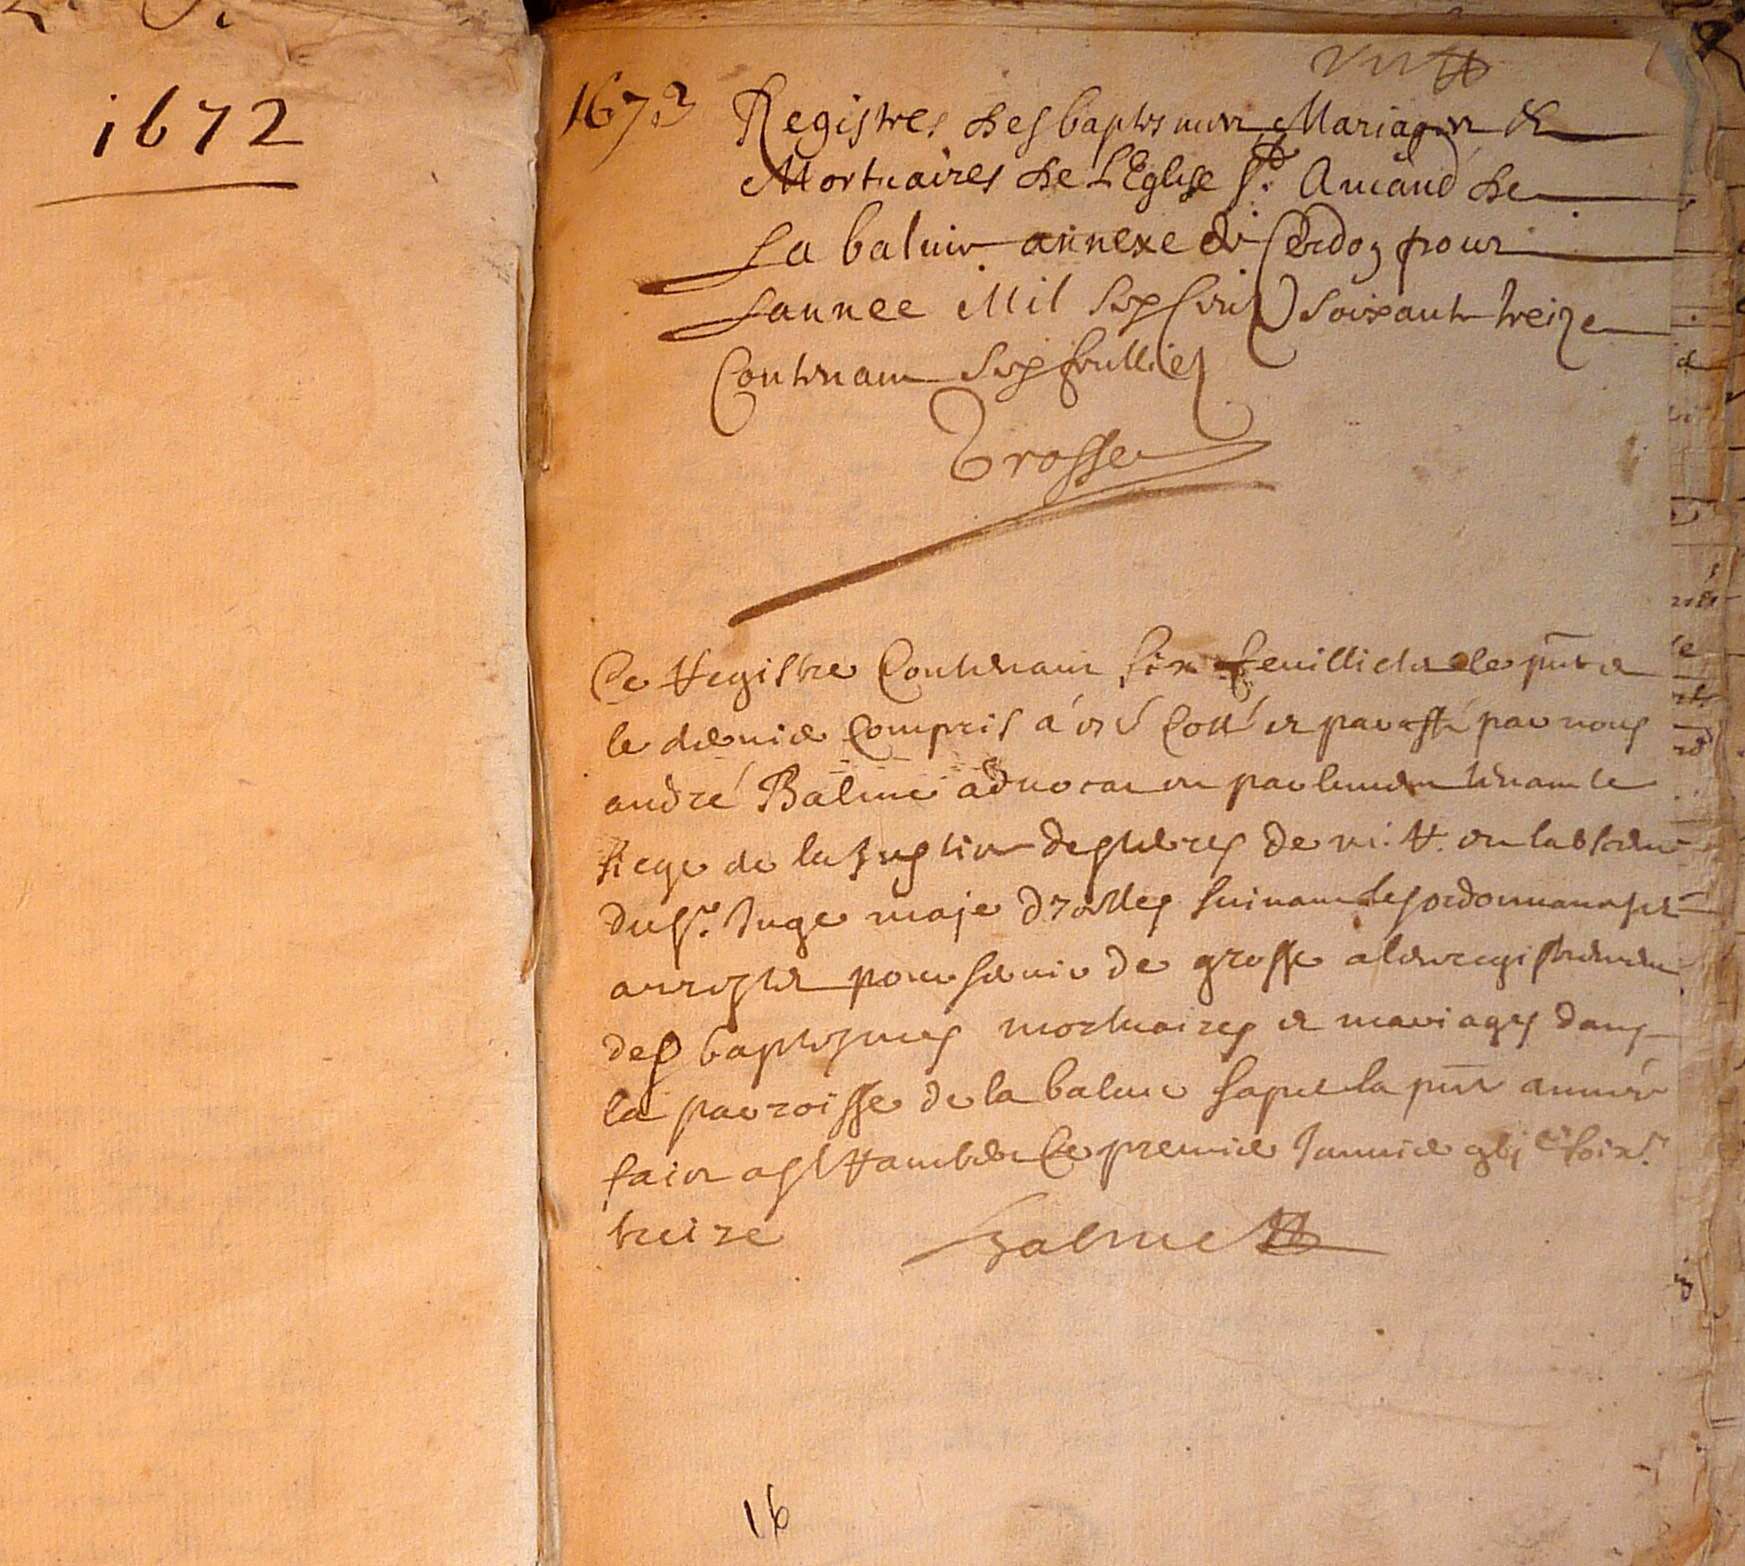 1672
1673 Registres des baptesmes Mariages &
Mortuaires de L'Eglise St. Amand de
La balme annexe de Cerdon pour
Lannee Mil Six Cens Soixante treize
Contenant Six feullies
Trosset
Ce Registre Contenant six feuillietz le pnr et
le dernier compris a esté Cotté et paraffé par nous
andré Balme advocat en parlement tenant le
siege de la Justice des terres de en labsence
du sr. Juge maje d'icelles suivant les ordonnances et
arrestz pour servir de grosse a lenregistrement
des baptesmes mortuaires et mariages dans
la parroisse de la balme sapel la pnte année
fait a St Rambert Ce premier Janvier Soixte.
treize
Balme
16